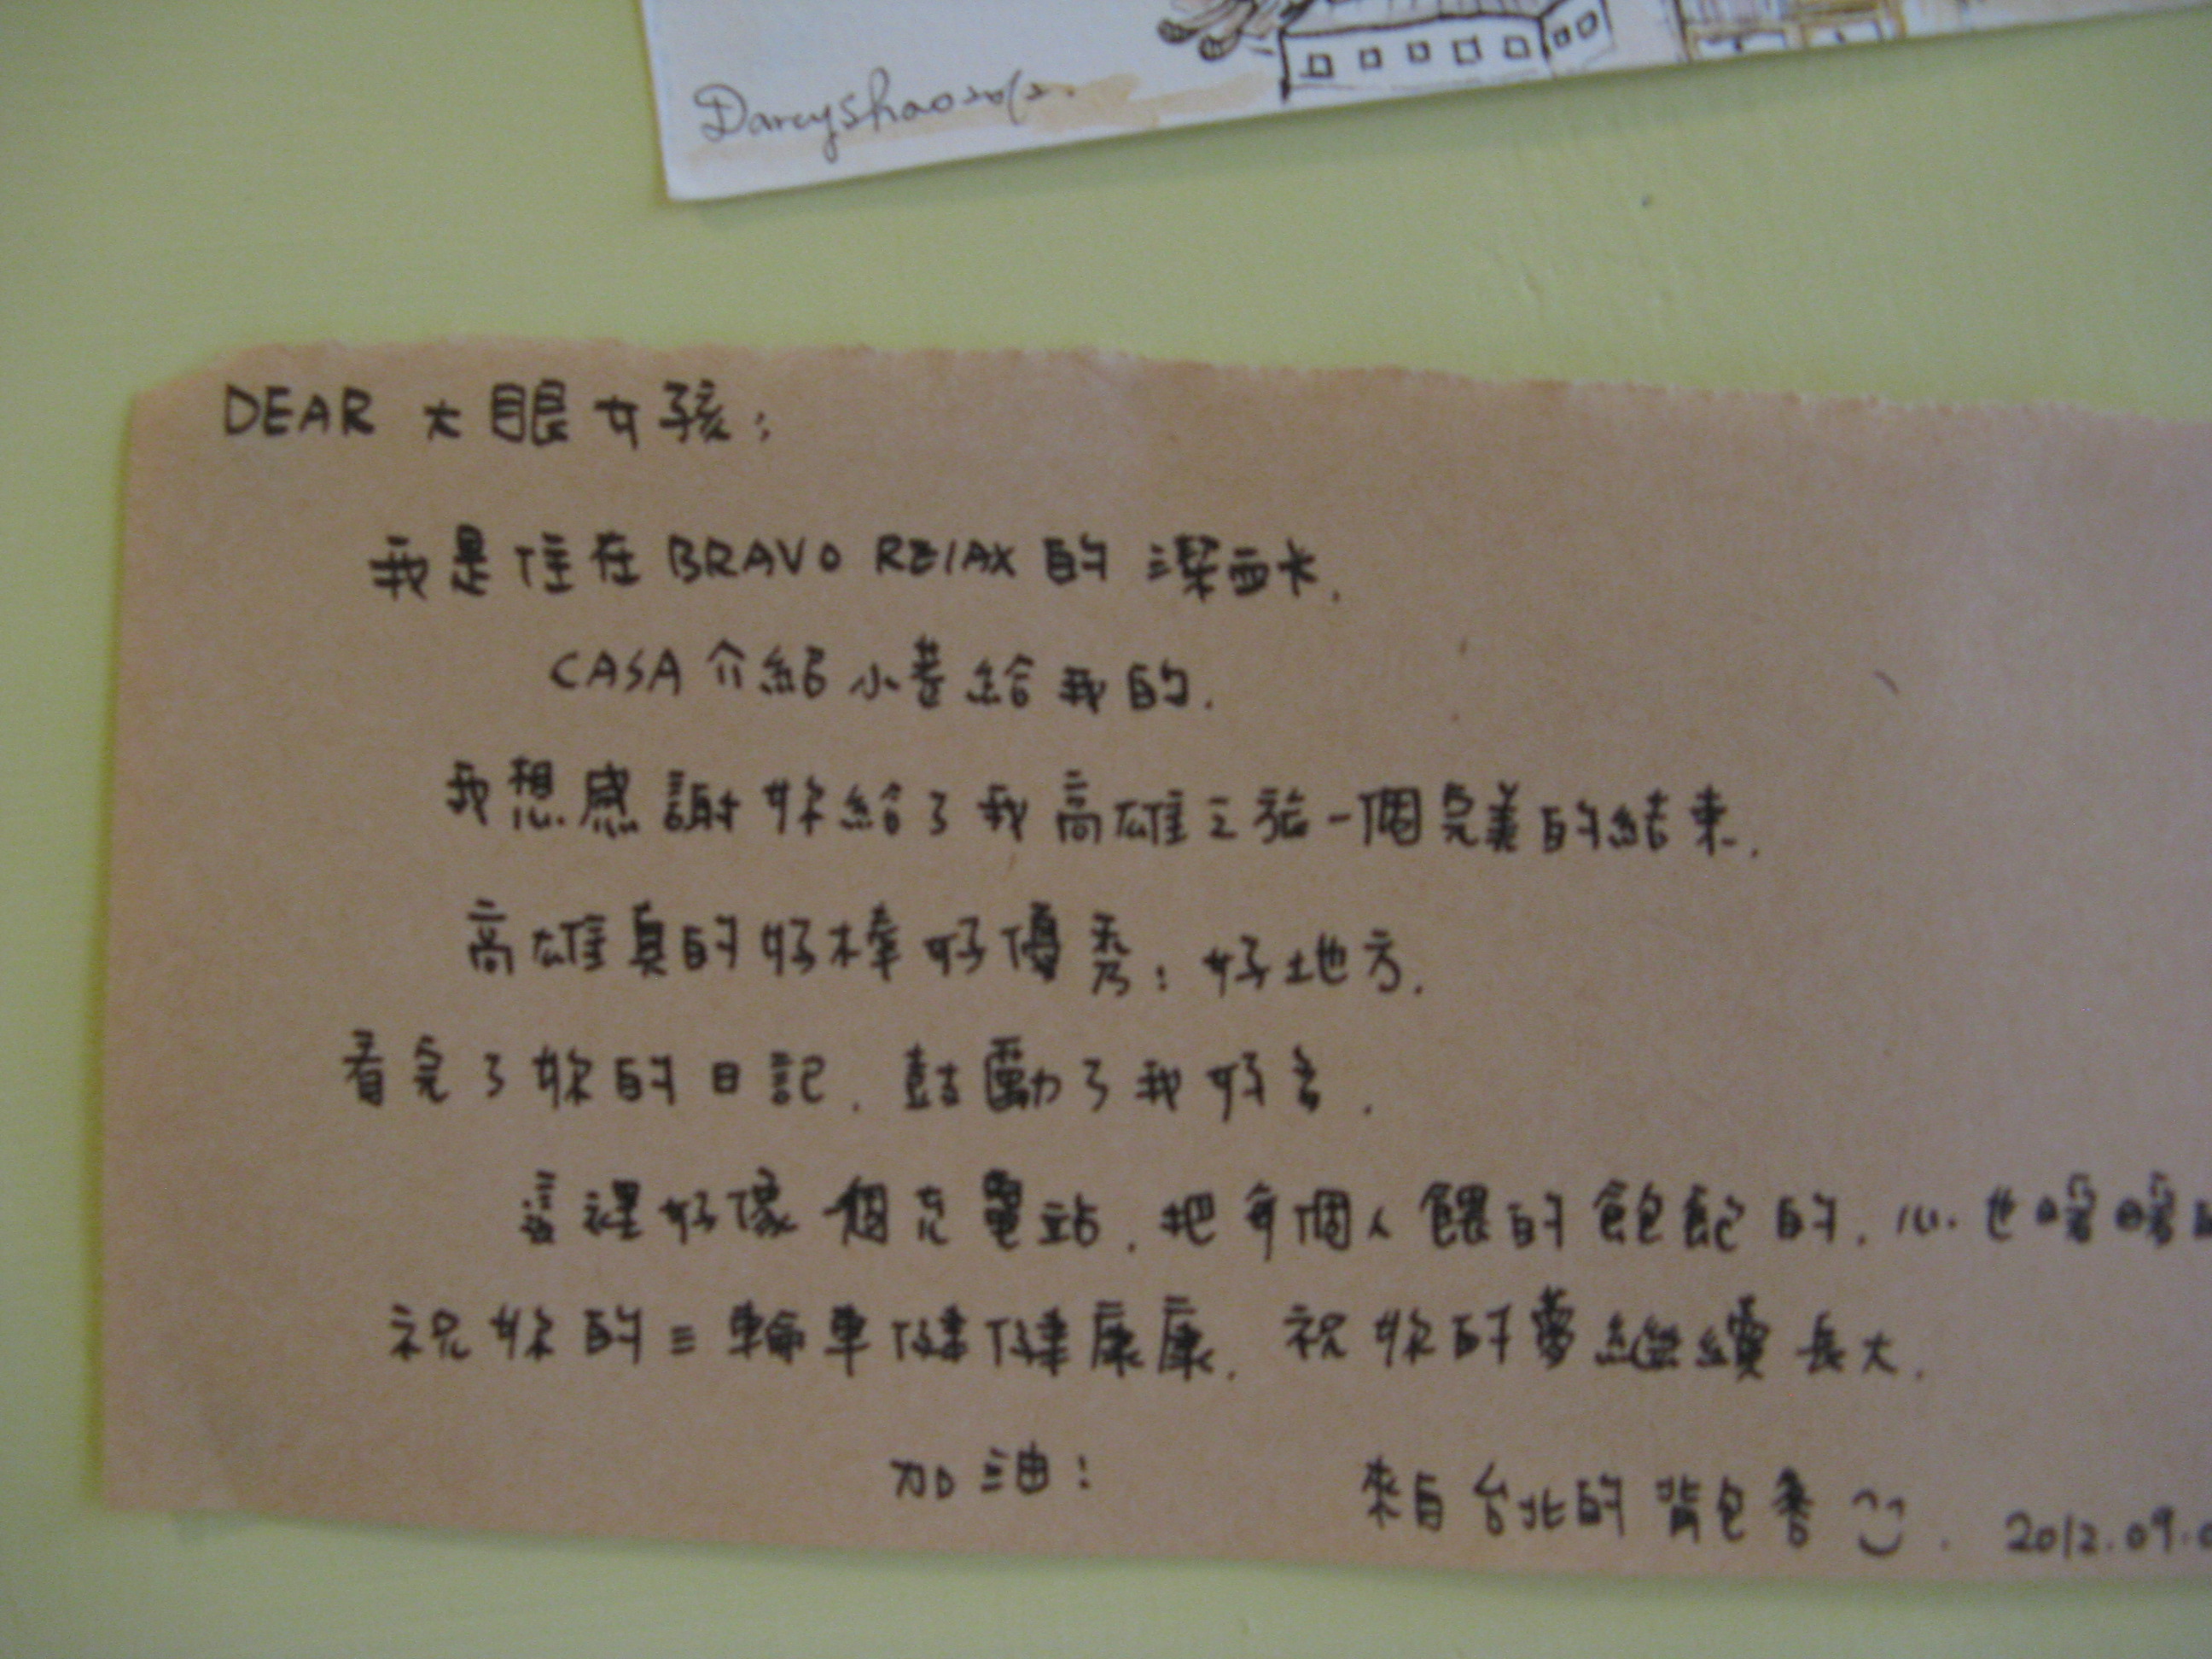 Darcyshao 2012.
DEAR 大眼女孩：
我是住在 BRAVO RELAX 的 潔西卡.
CASA 介紹小巷給我的.
我想感謝妳給了我高雄之旅一個完美的結束.
高雄真的好棒好優秀！好地方.
看完了妳的日記. 鼓勵了我好多.
這裡好像一個充電站. 把每個人餵的飽飽的. 心也暖暖
祝妳的三輪車健健康康. 祝妳的夢繼續長大.
加油！
來自台北的背包客 . 2012.09.